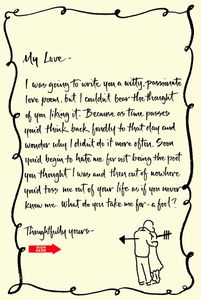 My Love-
I was going to write you a witty, passionate
love poem, but I couldn't bear the thought
of you liking it. Because as time passes
you'd think back fondly to that day and
wonder why I didn't do it more often. Soon
you'd begin to hate me for not being the poet
you thought I was and then out of nowhere
you'd toss me out of your life as if you never
knew me. What do you take me for - a fool?
Thoughtfully yours-
SIGN
HERE